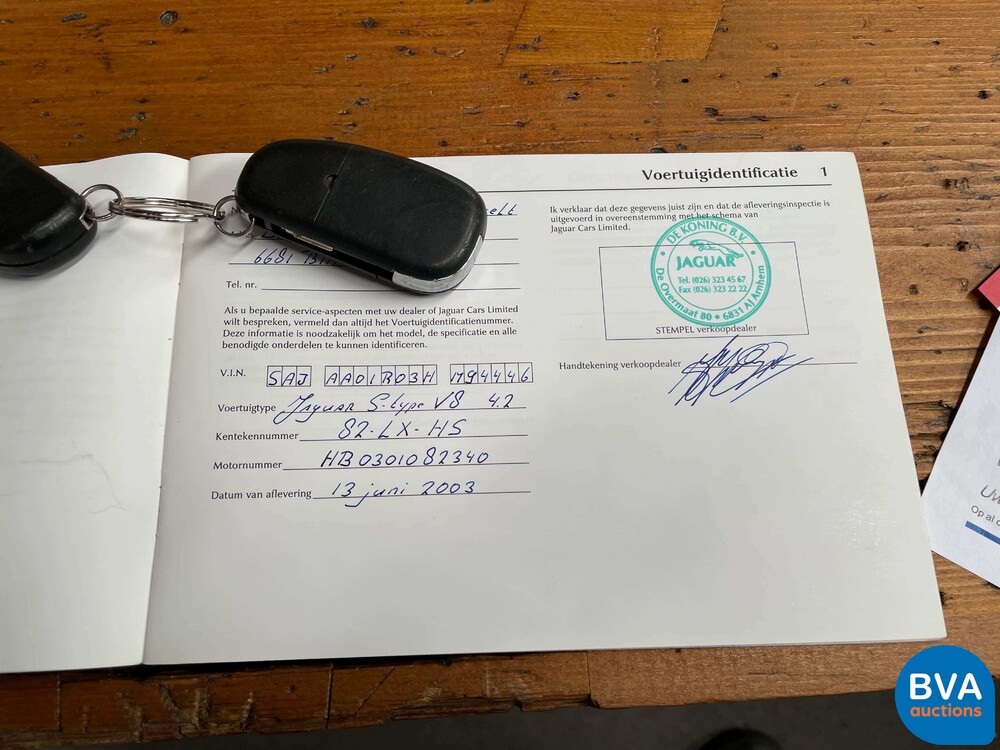 Voertuigidentificatie 1
6681
Tel. nr.
Als u bepaalde service-aspecten met uw dealer of Jaguar Cars Limited
wilt bespreken, vermeld dan altijd het Voertuigidentificatienummer.
Deze informatie is noodzakelijk om het model, de specificatie en alle
benodigde onderdelen te kunnen identificeren.
V.I.N. SAJ AA01R03H M94446
Voertuigtype Jaguar S-type V8 4.2
Kentekennummer 82-LX-HS
Motornummer HB0301082340
Datum van aflevering 13 juni 2003
Ik verklaar dat deze gegevens juist zijn en dat de afleveringsinspectie is
uitgevoerd in overeenstemming met het schema van
Jaguar Cars Limited.
DE KONING B.V.
JAGUAR
Tel. (026) 323 45 67
Fax (026) 323 22 22
De Overmaat 80 • 6831 AJ Arnhem
STEMPEL verkoopdealer
Handtekening verkoopdealer
Op al
BVA
auctions